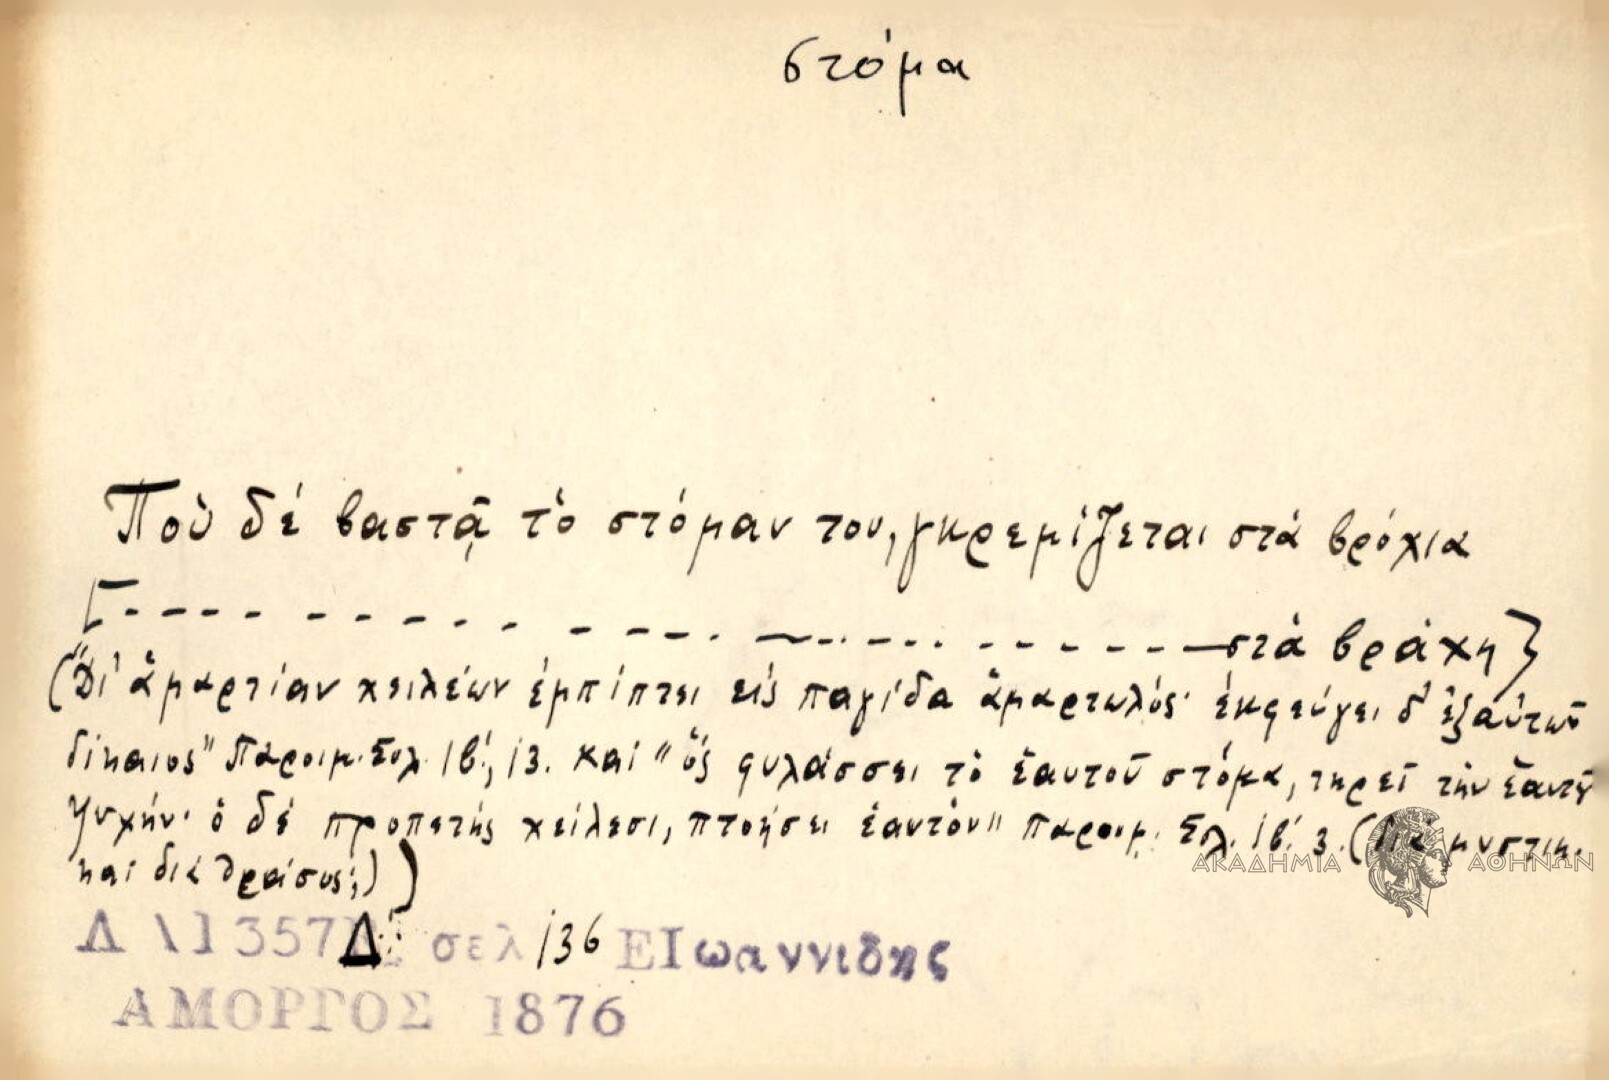 στόμα
Ποὺ δέ βαστᾷ τὸ στόμαν του, γκρεμίζεται στὰ βρόχια
[--- - - - - - - - - στὰ βράχη]
("Δι' ἁμαρτίαν χειλέων ἐμπίπτει εἰς παγίδα ἁμαρτωλός· ἐκφεύγει δ' ἐξ αὐτῶν
δίκαιος" Παροιμ. Σολ. ιβ', 13. καὶ "ὅς φυλάσσει τὸ ἑαυτοῦ στόμα, τηρεῖ τὴν ἑαυτοῦ
ψυχήν· ὁ δὲ προπετής χείλεσι, πτοήσει ἑαυτόν" Παροιμ. Σολ. ιβ'. 3. ( μυστικ.
καὶ διὰ θράσυς;) )
Δ \1357 Δ σελ 136 ΕΙωαννιδης
ΑΜΟΡΓΟΣ 1876
ΑΚΑΔΗΜΙΑ ΑΘΗΝΩΝ